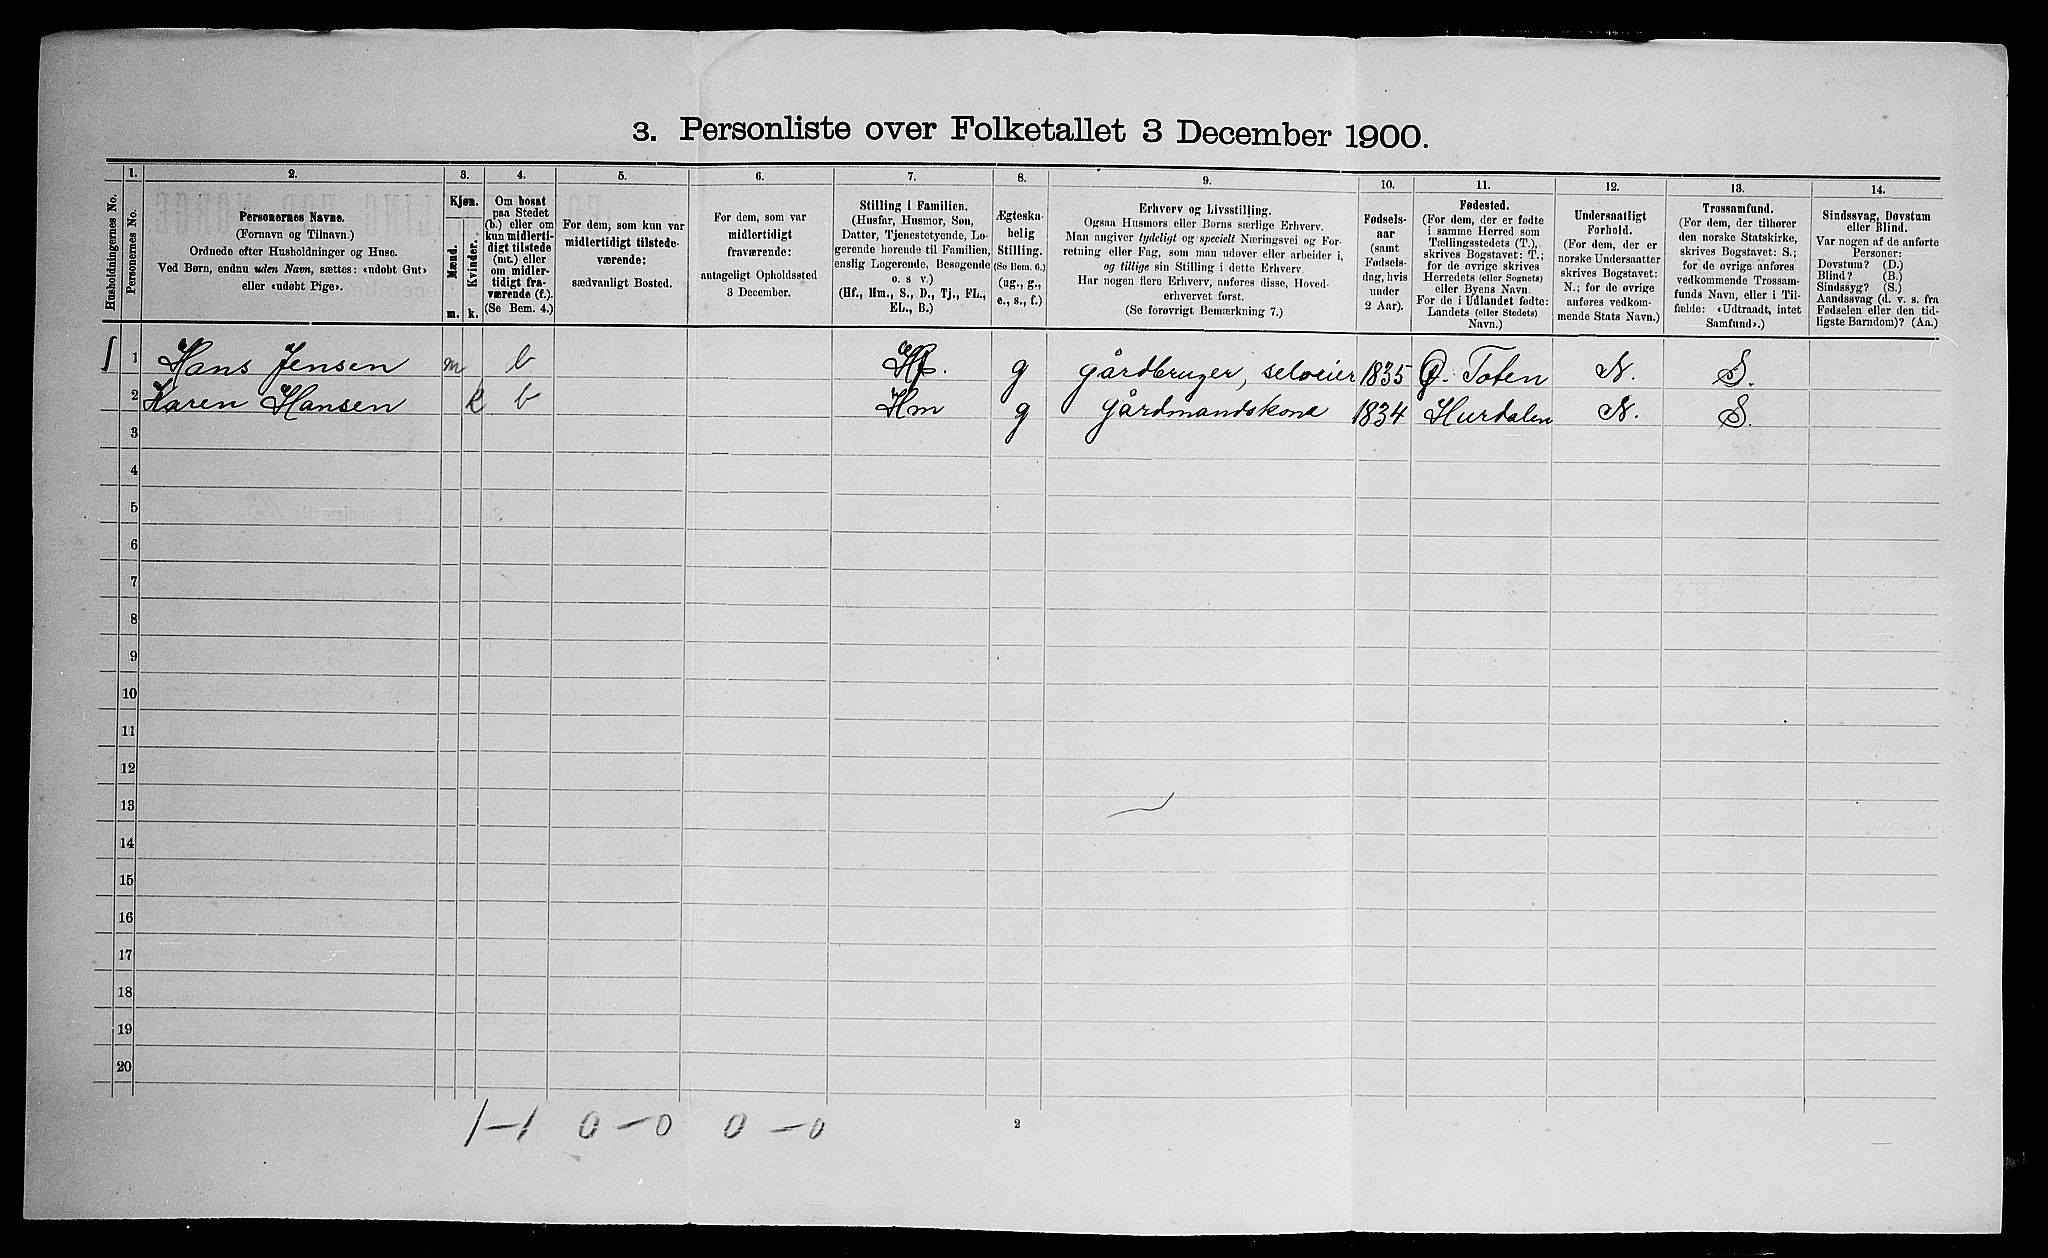 3. Personliste over Folketallet 3 December 1900.
Husholdningernes No.
1.
Personernes No.
2.
Personernes Navne.
(Fornavn og Tilnavn.)
Ordnede efter Husholdninger og Huse.
Ved Børn, endnu uden Navn, sættes: «udøbt Gut»
eller «udøbt Pige».
3.
Kjøn.
Mænd.
m.
Kvinder.
k.
4.
Om bosat
paa Stedet
(b.) eller om
kun midlerti-
digt tilstede
(mt.) eller
om midler-
tidigt fra-
værende (f.).
(Se Bem. 4.)
5.
For dem, som kun var
midlertidigt tilstede-
værende:
sædvanligt Bosted.
6.
For dem, som var
midlertidigt
fraværende:
antageligt Opholdssted
3 December.
7.
Stilling i Familien.
(Husfar, Husmor, Søn,
Datter, Tjenestetyende, Lo-
gerende hørende til Familien,
enslig Logerende, Besøgende
o. s. v.)
(Hf., Hm., S., D., Tj., FL.,
EL., B.)
8.
Ægteska-
belig
Stilling.
(Se Bem. 6.)
(ug., g.,
e., s., f.)
9.
Erhverv og Livsstilling.
Ogsaa Husmors eller Børns særlige Erhverv.
Man angiver tydeligt og specielt Næringsvei og For-
retning eller Fag, som man udøver eller arbeider i,
og tillige sin Stilling i dette Erhverv.
Har nogen flere Erhverv, anføres disse, Hoved-
erhvervet først.
(Se forøvrigt Bemærkning 7.)
10.
Fødsels-
aar
(samt
Fødsels-
dag, hvis
under
2 Aar).
11.
Fødested.
(For dem, der er fødte
i samme Herred som
Tællingsstedets (T.),
skrives Bogstavet: T.;
for de øvrige skrives
Herredets (eller Sognets)
eller Byens Navn.
For de i Udlandet fødte:
Landets (eller Stedets)
Navn.)
12.
Undersaatligt
Forhold.
(For dem, der er
norske Undersaatter
skrives Bogstavet:
N.; for de øvrige
anføres vedkom-
mende Stats Navn.)
13.
Trossamfund.
(For dem, der tilhører
den norske Statskirke,
skrives Bogstavet: S.;
for de øvrige anføres
vedkommende Trossam-
funds Navn, eller i Til-
fælde: «Udtraadt, intet
Samfund».)
14.
Sindssvag, Døvstum
eller Blind.
Var nogen af de anførte
Personer:
Døvstum? (D.)
Blind? (B.)
Sindssyg? (S.)
Aandssvag (d. v. s. fra
Fødselen eller den tid-
ligste Barndom)? (Aa.)
1 Hans Jensen m b Hf. g gårdbruger, selveier 1835 Ø. Toten N. S.
2 Karen Hansen k b Hm g gårdmandskone 1834 Hurdalen N. S.
3
4
5
6
7
8
9
10
11
12
13
14
15
16
17
18
19
20
1-1 0-0 0-0
2